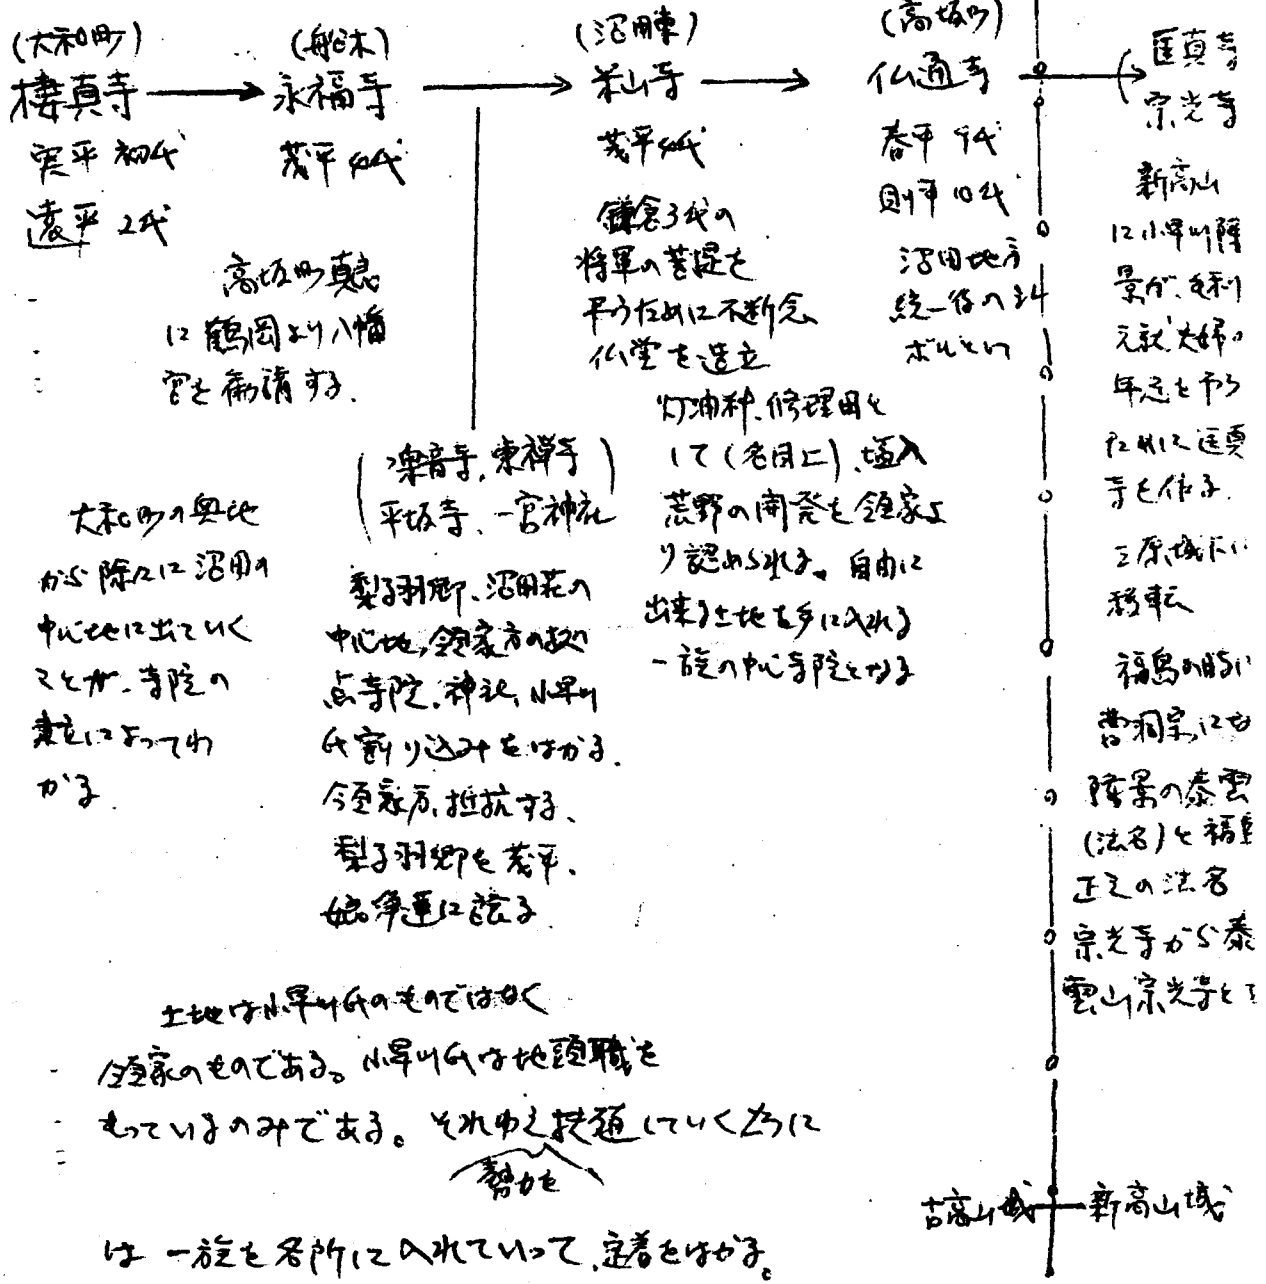 (大和町)
棲真寺
実平 初代
遠平 2代
(船木)
永福寺
茂平 4代
高坂町真良
に鶴岡より八幡
宮を勧請する.
(沼田東)
米山寺
茂平4代
鎌倉3代の
将軍の菩提を
弔うために不断念
仏堂を造立
灯油料、修理田と
して(名目上)、塩入
荒野の開発を領家よ
り認められる。自由に
出来る土地を手に入れる
一族の中心寺院となる
(高坂町)
仏通寺
春平 9代
則平 10代
沼田地方
統一後のシン
ボルとい
匡真寺
宗光寺
新高山
に小早川隆
景が、毛利
元就夫婦の
年忌を弔う
ために匡真
寺を作る.
三原城下に
移転
福島の時に
曹洞宗に
隆景の泰雲
(法名)と福島
正之の法名
宗光寺から泰
雲山宗光寺と
楽音寺、東禅寺
平坂寺、一宮神社
梨子羽郷、沼田荘の
中心地、領家方の拠
点寺院、神社、小早川
氏割り込みをはかる.
領家方、抵抗する、
梨子羽郷を茂平、
娘浄蓮に譲る
大和町の奥地
から除々に沼田の
中心地に出ていく
ことが、寺院の
建立によってわ
かる
土地は小早川氏のものではなく
領家のものである。小早川氏は地頭職を
もっているのみである。それゆえ扶植していくために
勢力を
は 一族を各所に入れていって、定着をはかる。
古高山城
新高山城